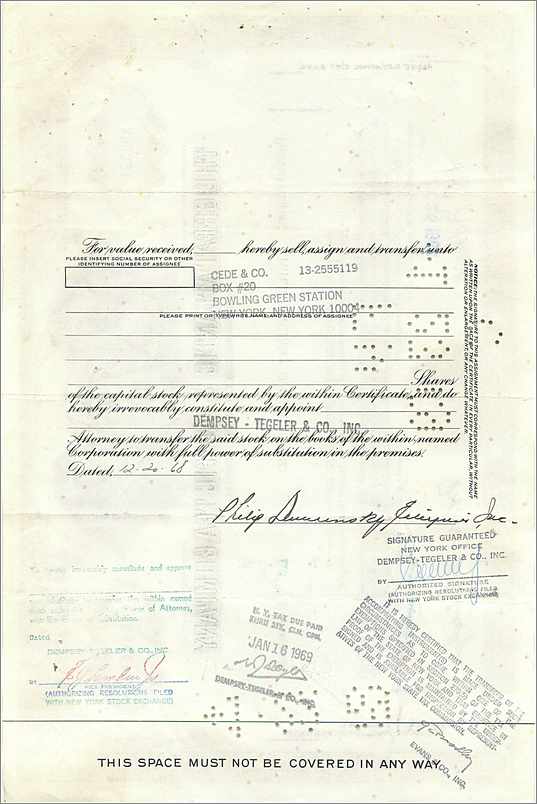 For value received, hereby sell, assign and transfer unto
PLEASE INSERT SOCIAL SECURITY OR OTHER
IDENTIFYING NUMBER OF ASSIGNEE
CEDE & CO. 13-2555119
BOX #20
BOWLING GREEN STATION
NEW YORK, NEW YORK 10004
PLEASE PRINT OR TYPEWRITE NAME AND ADDRESS OF ASSIGNEE
Shares
of the capital stock represented by the within Certificate, and do
hereby irrevocably constitute and appoint
DEMPSEY - TEGELER & CO., INC.
Attorney to transfer the said stock on the books of the within named
Corporation with full power of substitution in the premises.
Dated, 12-20-68
NOTICE: THE SIGNATURE TO THIS ASSIGNMENT MUST CORRESPOND WITH THE NAME
AS WRITTEN UPON THE FACE OF THE CERTIFICATE IN EVERY PARTICULAR, WITHOUT
ALTERATION OR ENLARGEMENT, OR ANY CHANGE WHATEVER.
Philip Inc.
SIGNATURE GUARANTEED
NEW YORK OFFICE
DEMPSEY-TEGELER & CO., INC.
BY
AUTHORIZED SIGNATURE
(AUTHORIZING RESOLUTIONS FILED
WITH NEW YORK STOCK EXCHANGE)
irrevocably constitute and appoint
within named
Power of Attorney,
of Substitution.
Dated
DEMPSEY-TEGELER & CO., INC.
BY
VICE PRESIDENT
(AUTHORIZING RESOLUTIONS FILED
WITH NEW YORK STOCK EXCHANGE)
N. Y. TAX DUE PAID
THRU STK. CLR. CPN.
JAN 16 1969
DEMPSEY-TEGELER & CO., INC.
IT IS HEREBY CERTIFIED THAT THE TRANSFER OF
EVANS & CO., INC.
THIS SPACE MUST NOT BE COVERED IN ANY WAY